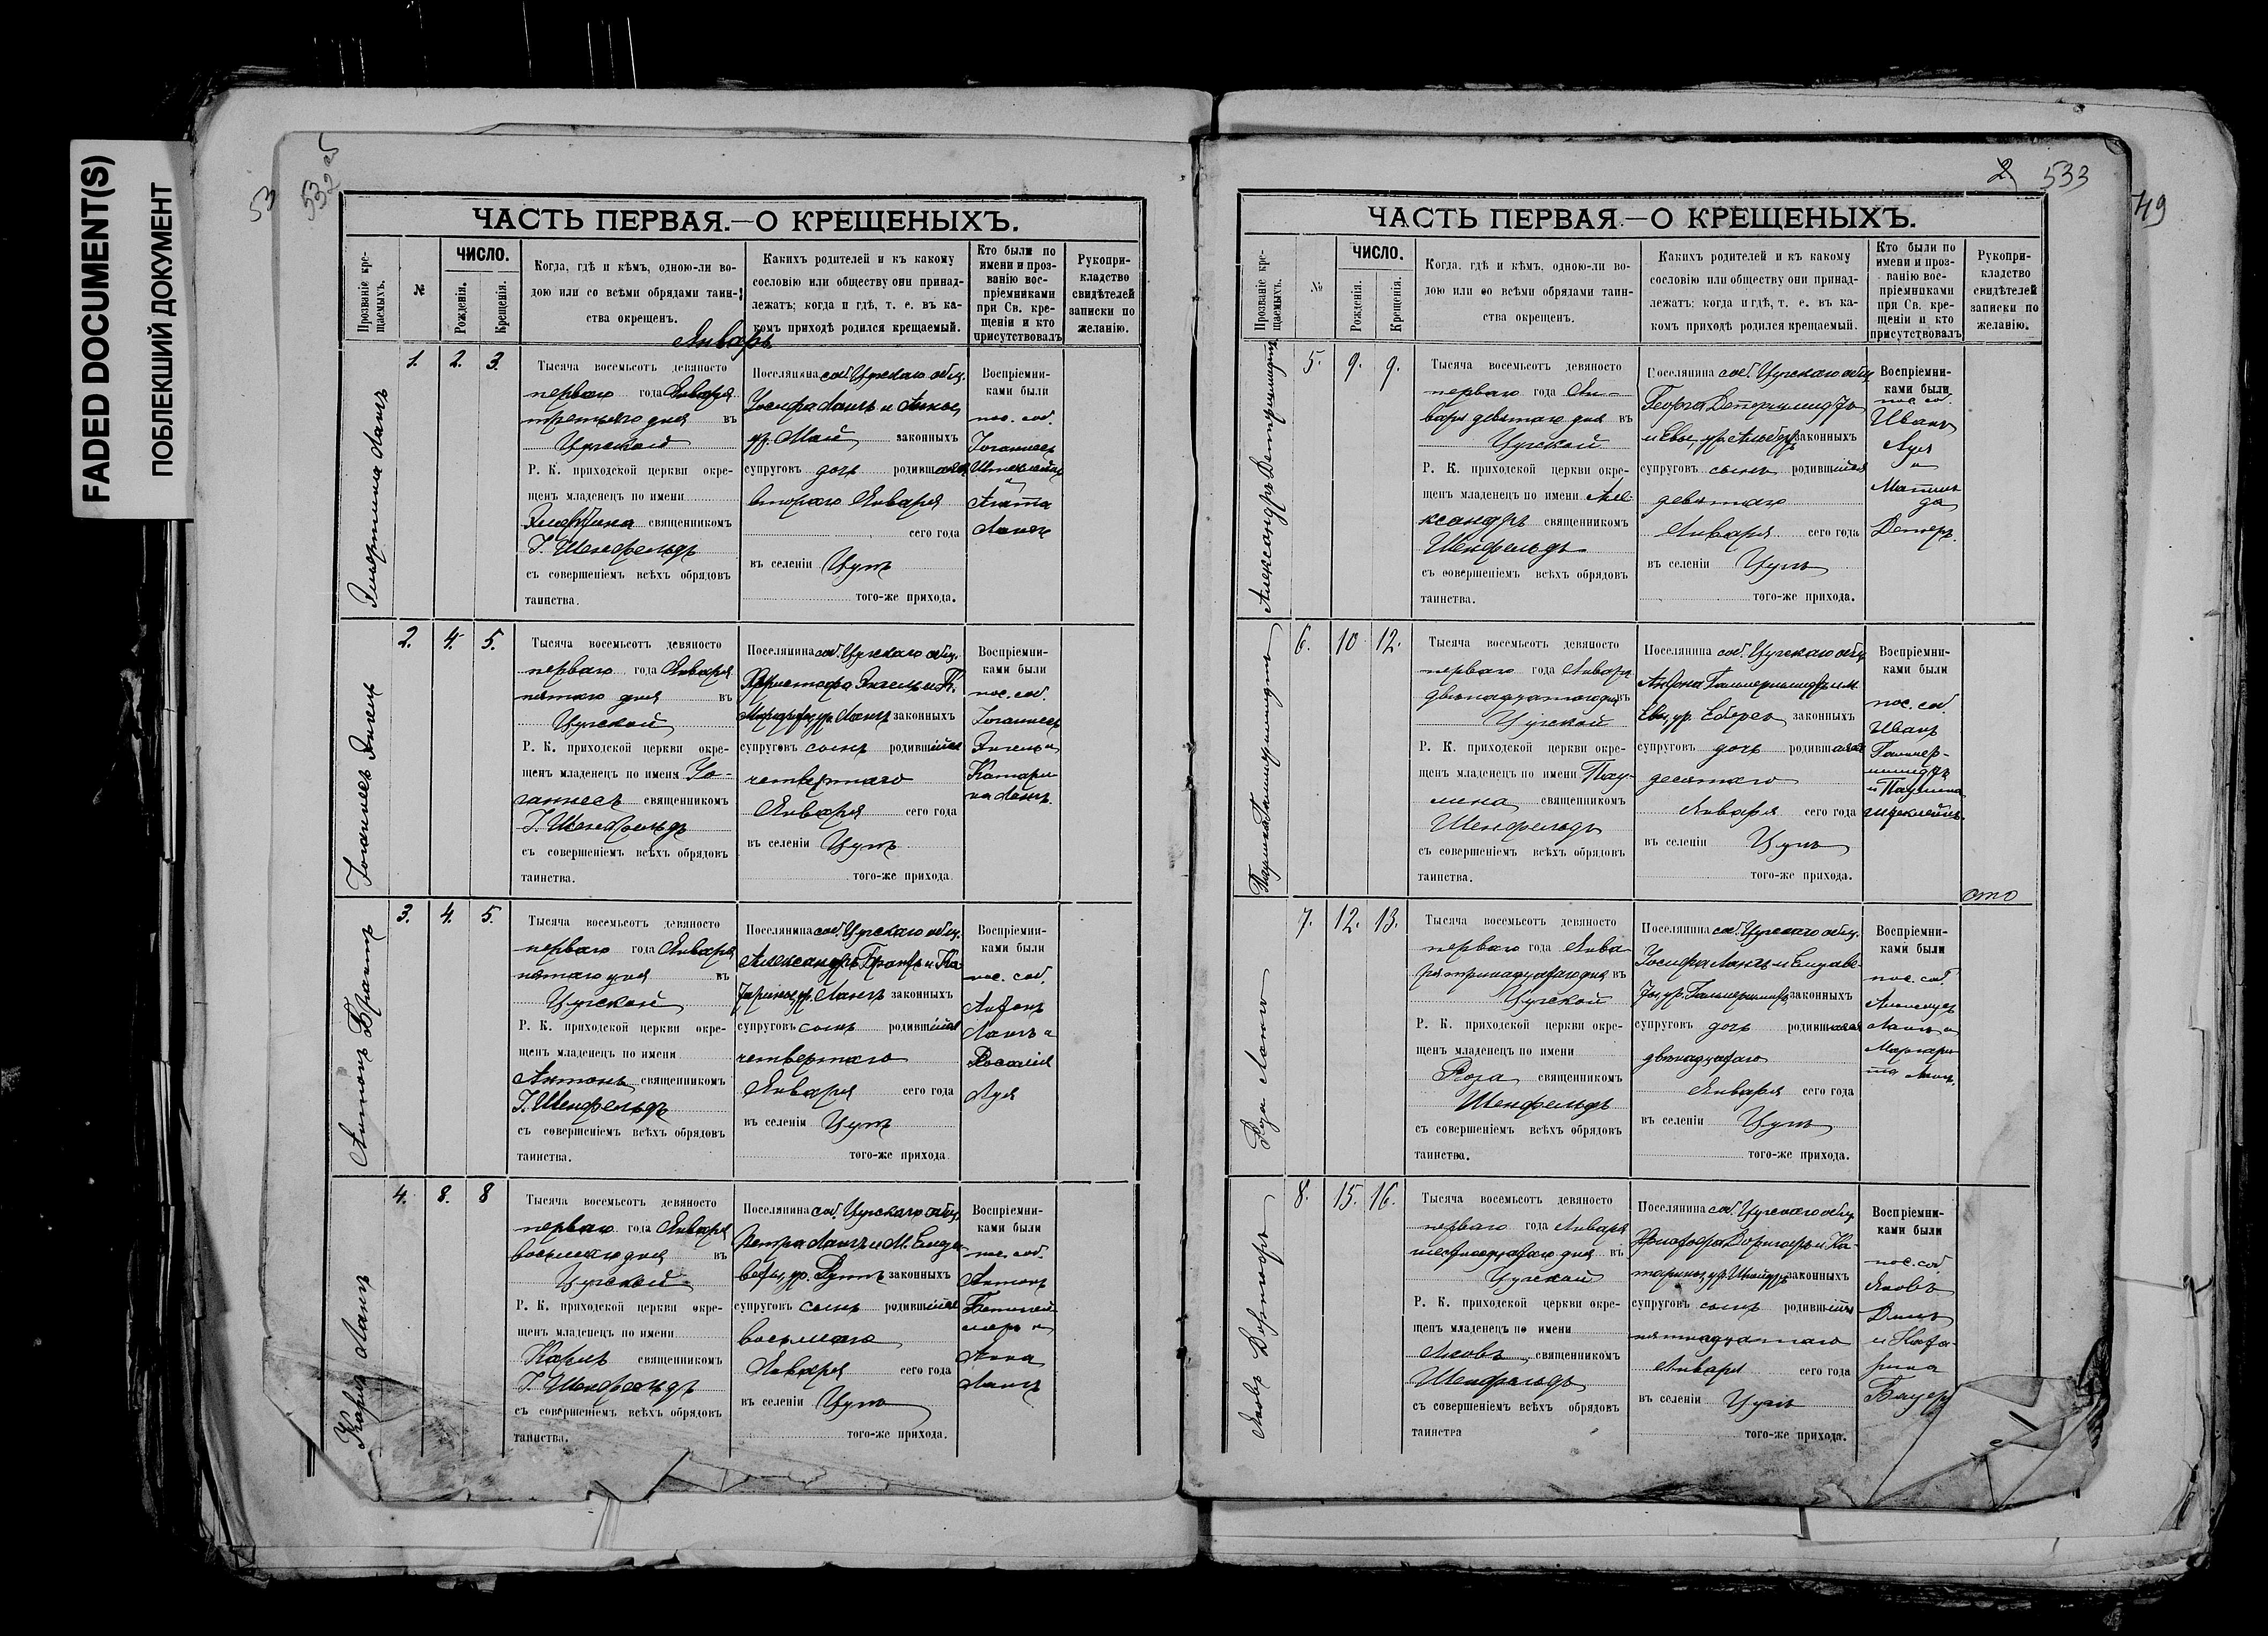 FADED DOCUMENT(S)
ПОБЛЕКШИЙ ДОКУМЕНТ
53
532 об
ЧАСТЬ ПЕРВАЯ.—О КРЕЩЕНЫХЪ.
Прозваніе кре-
щаемыхъ.
№
ЧИСЛО.
Рожденія.
Крещенія.
Когда, гдѣ и кѣмъ, одною-ли во-
дою или со всѣми обрядами таин-
ства окрещенъ.
Какихъ родителей и къ какому
сословію или обществу они принад-
лежатъ; когда и гдѣ, т. е. въ ка-
комъ приходѣ родился крещаемый.
Кто были по
имени и проз-
ванію вос-
пріемниками
при Св. кре-
щеніи и кто
присутствовалъ
Рукопри-
кладство
свидѣтелей
записки по
желанію.
Январь
1. 2. 3.
Тысяча восемьсотъ девяносто
перваго года Января
третьяго дня въ
Цугской
Р. К. приходской церкви окре-
щенъ младенецъ по имени
священникомъ
І. Шенфельдъ
съ совершеніемъ всѣхъ обрядовъ
таинства.
Поселянина соб. Цугскаго общ.
Іосифа Лангъ и Анны,
ур. Май законныхъ
супруговъ дочь родившаяся
втораго Января
сего года
въ селеніи Цугъ
того-же прихода.
Воспріемни-
ками были
пос. соб.
Іоганнесъ
и
Агата
Лангъ
Іоганнесъ Энгель
2. 4. 5.
Тысяча восемьсотъ девяносто
перваго года Января
пятаго дня въ
Цугской
Р. К. приходской церкви окре-
щенъ младенецъ по имени Іо-
ганнесъ священникомъ
І. Шенфельдъ
съ совершеніемъ всѣхъ обрядовъ
таинства.
Поселянина соб. Цугскаго общ.
Христофа Энгель и
ур. Лангъ законныхъ
супруговъ сынъ родившійся
четвертаго
Января сего года
въ селеніи Цугъ
того-же прихода
Воспріемни-
ками были
пос. соб.
Іоганнесъ
Энгель и
Катари-
на Лангъ.
Антонъ Брантъ
3. 4. 5.
Тысяча восемьсотъ девяносто
перваго года Января
пятаго дня въ
Цугской
Р. К. приходской церкви окре-
щенъ младенецъ по имени
Антонъ священникомъ
І. Шенфельдъ
съ совершеніемъ всѣхъ обрядовъ
таинства.
Поселянина соб. Цугскаго общ.
Александръ Брантъ и Ка-
тарины, ур. Лангъ законныхъ
супруговъ сынъ родившійся
четвертаго
Января сего года
въ селеніи Цугъ
того-же прихода
Воспріемни-
ками были
пос. соб.
Антонъ
Лангъ и
Розалія
Ауя
Карлъ Лангъ
4. 8. 8
Тысяча восемьсотъ девяносто
перваго года Января
восьмаго дня въ
Цугской
Р. К. приходской церкви окре-
щенъ младенецъ по имени
Карлъ священникомъ
І. Шенфельдъ
съ совершеніемъ всѣхъ обрядовъ
таинства.
Поселянина соб. Цугскаго общ.
Петра Лангъ и М. Елиза-
веты, ур. законныхъ
супруговъ сынъ родившійся
восьмаго
Января сего года
въ селеніи Цугъ
того-же прихода.
Воспріемни-
ками были
пос. соб.
Антонъ
и
Анна
Лангъ
2 533
49
ЧАСТЬ ПЕРВАЯ.—О КРЕЩЕНЫХЪ.
Прозваніе кре-
щаемыхъ.
№
ЧИСЛО.
Рожденія.
Крещенія.
Когда, гдѣ и кѣмъ, одною-ли во-
дою или со всѣми обрядами таин-
ства окрещенъ.
Какихъ родителей и къ какому
сословію или обществу они принад-
лежатъ; когда и гдѣ, т. е. въ ка-
комъ приходѣ родился крещаемый.
Кто были по
имени и проз-
ванію вос-
пріемниками
при Св. кре-
щеніи и кто
присутствовалъ
Рукопри-
кладство
свидѣтелей
записки по
желанію.
Александръ
5. 9. 9.
Тысяча восемьсотъ девяносто
перваго года Ян-
варя девятаго дня въ
Цугской
Р. К. приходской церкви окре-
щенъ младенецъ по имени Але-
ксандръ священникомъ
Шенфельдъ
съ совершеніемъ всѣхъ обрядовъ
таинства.
Поселянина соб. Цугскаго общ.
Георга
и Евы, ур. законныхъ
супруговъ сынъ родившійся
девятаго
Января сего года
въ селеніи Цугъ
того-же прихода.
Воспріемни-
ками были
пос. соб.
Иванъ
Ауя
и
Матиль-
да
Детеръ.
Паулина Гаммершмидтъ
6. 10 12.
Тысяча восемьсотъ девяносто
перваго года Января
двѣнадцатаго дня въ
Цугской
Р. К. приходской церкви окре-
щенъ младенецъ по имени Пау-
лина священникомъ
Шенфельдъ
съ совершеніемъ всѣхъ обрядовъ
таинства.
Поселянина соб. Цугскаго общ.
Антона Гаммершмидтъ и М.
Евы, ур. законныхъ
супруговъ дочь родившаяся
десятаго
Января сего года
въ селеніи Цугъ
того-же прихода.
Воспріемни-
ками были
пос. соб.
Иванъ
Гаммер-
шмидтъ
и Паулина
Роза Лангъ
7. 12. 13.
Тысяча восемьсотъ девяносто
перваго года Янва-
ря тринадцатаго дня въ
Цугской
Р. К. приходской церкви окре-
щенъ младенецъ по имени
Роза священникомъ
Шенфельдъ
съ совершеніемъ всѣхъ обрядовъ
таинства.
Поселянина соб. Цугскаго общ.
Іосифа Лангъ и Елизаве-
ты, ур. Гаммершмидтъ законныхъ
супруговъ дочь родившаяся
двѣнадцатаго
Января сего года
въ селеніи Цугъ
того-же прихода.
Воспріемни-
ками были
пос. соб.
Лангъ и
Маргари-
та Лангъ.
Яковъ
8. 15. 16.
Тысяча восемьсотъ девяносто
перваго года Января
шестнадцатаго дня въ
Цугской
Р. К. приходской церкви окре-
щенъ младенецъ по имени
Яковъ священникомъ
Шенфельдъ
съ совершеніемъ всѣхъ обрядовъ
таинства
Поселянина соб. Цугскаго общ.
и Ка-
тарины, ур. Шнейдеръ законныхъ
супруговъ сынъ родившійся
пятнадцатаго
Января сего года
въ селеніи Цугъ
того-же прихода.
Воспріемни-
ками были
пос. соб.
Яковъ
и Ката-
рина
Бауеръ